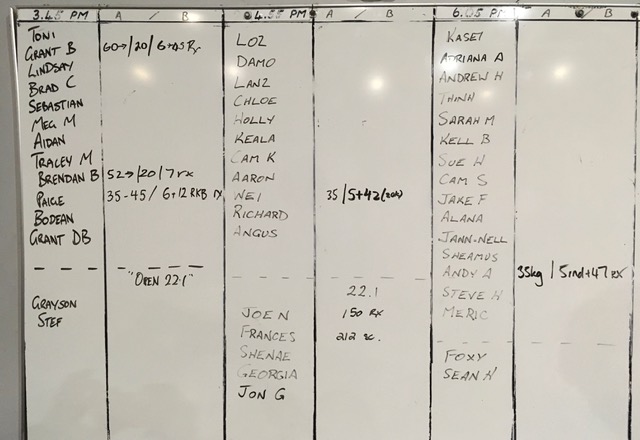 3.45 PM A / B
TONI
GRANT B 60→/20/6+45 Rx
LINDSAY
BRAD C
SEBASTIAN
MEG M
AIDAN
TRACEY M
BRENDAN B 52→/20/7 rx
PAIGE 35-45/ 6+12 RKB rx
BODEAN
GRANT DB
"OPEN 22.1"
GRAYSON
STEF
4.55 PM A / B
LOZ
DAMO
LANZ
CHLOE
HOLLY
KEALA
CAM K
AARON
NEI 35/5+42
RICHARD
ANGUS
22.1
JOE N 150 RX
FRANCES 212 sc.
SHENAE
GEORGIA
JON G
6.05 PM A / B
KASEY
ATRIANA A
ANDREW H
THINH
SARAH M
KELL B
SUE W
CAM S
JAKE F
ALANA
JANN-NELL
SHEAMUS
ANDY A 35kg / 5rnd+47 RX
STEVE H
MERIC
FOXY
SEAN H